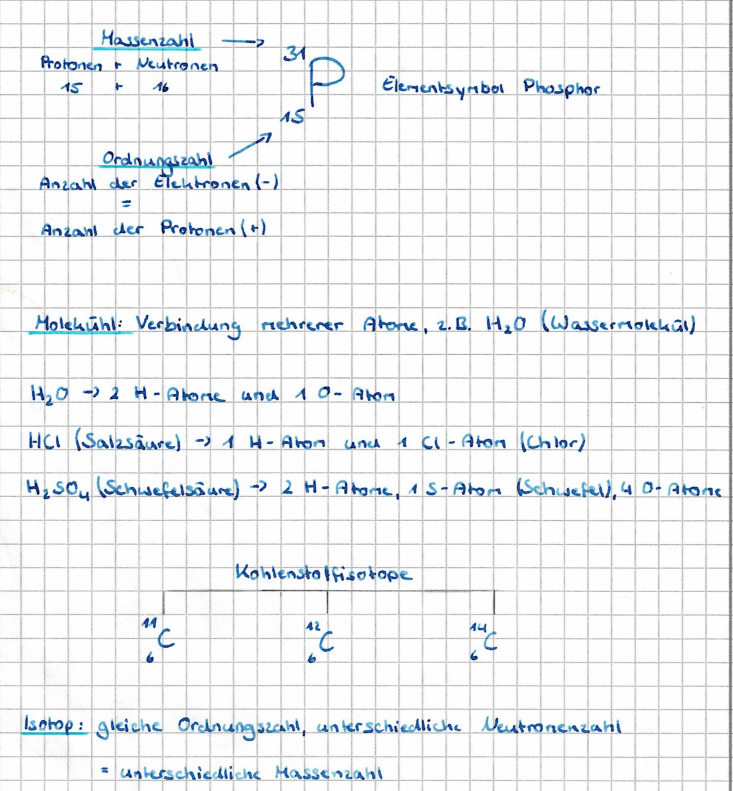 Massenzahl →
Protonen + Neutronen
15 + 16
31
P
15
Elementsymbol Phosphor
Ordnungszahl
Anzahl der Elektronen (-)
=
Anzahl der Protonen (+)
Molekühl: Verbindung mehrerer Atome, z.B. H₂O (Wassermolekül)
H₂O → 2 H-Atome und 1 O-Atom
HCl (Salzsäure) → 1 H-Atom und 1 Cl-Atom (Chlor)
H₂SO₄ (Schwefelsäure) → 2 H-Atome, 1 S-Atom (Schwefel), 4 O-Atome
Kohlenstoffisotope
¹¹₆C ¹²₆C ¹⁴₆C
Isotop: gleiche Ordnungszahl, unterschiedliche Neutronenzahl
= unterschiedliche Massenzahl